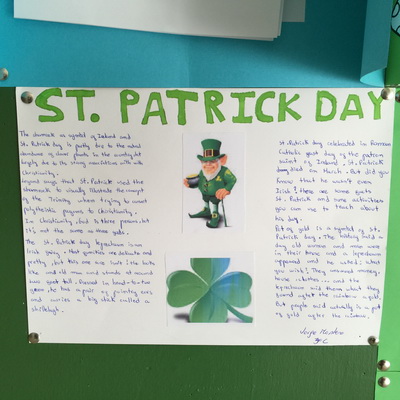 ST. PATRICK DAY
The shamrock as symbol of Ireland and
St. Patrick's day is partly due to the actual
abundance of clover plants in the country, but
largely due to the strong association with
Christianity.
legend says that St. Patrick used the
shamrock to visually illustrate the concept
of the Trinity when trying to convert
polytheistic pagans to Christianity.
In Christianity, God is three persons, but
it's not the same as three gods.
The St. Patrick day leprechaun is an
Irish fairy. that are delicate and
pretty, but this one are isn't! He looks
like and old man and stands at around
two feet tall. Dressed in head-to-toe
green
and carries a big stick called a
shillelagh.
St. Patrick day celebrated in Roman
Catholic feast day of the patron
saint of Ireland. St. Patrick
died on March. But did you
know that he wasn't even
Irish! There are some facts
St. Patrick and some activities
you can use to teach about
his day.
Pot of gold is a symbol of St.
Patrick day.
day old woman and man were
in their house and a leprechaun
appeared and he asked: what
you wish? They wanted money,
house, clothes ... and the
leprechaun said them what they
found after the rainbow a gold.
But people said actually is a pot
of gold after the rainbow.